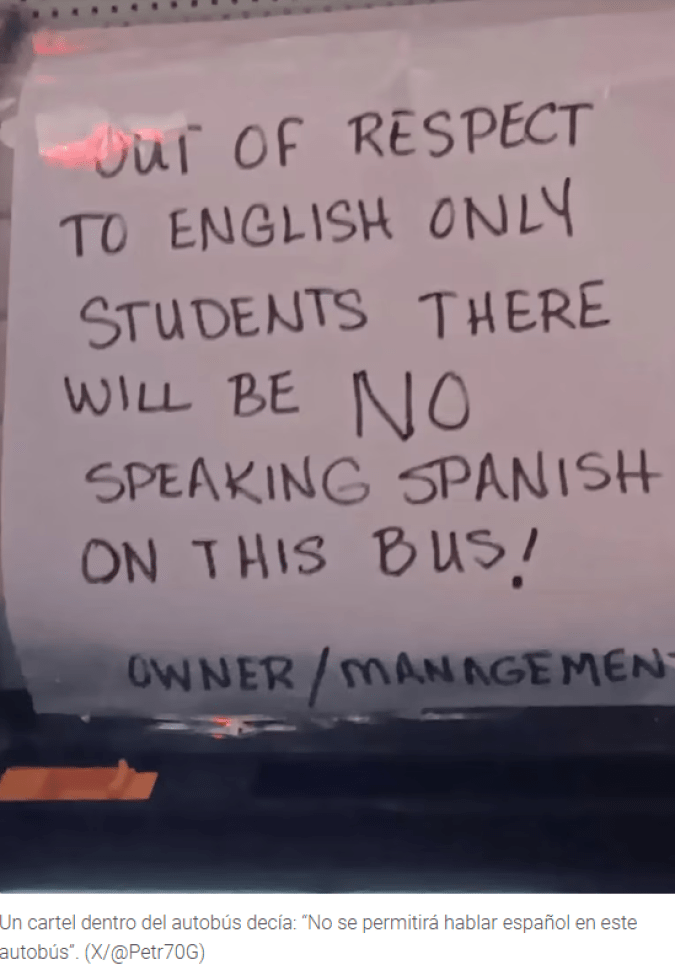 OUT OF RESPECT
TO ENGLISH ONLY
STUDENTS THERE
WILL BE NO
SPEAKING SPANISH
ON THIS BUS!
OWNER/MANAGEMENT
Un cartel dentro del autobús decía: “No se permitirá hablar español en este
autobús”. (X/@Petr70G)